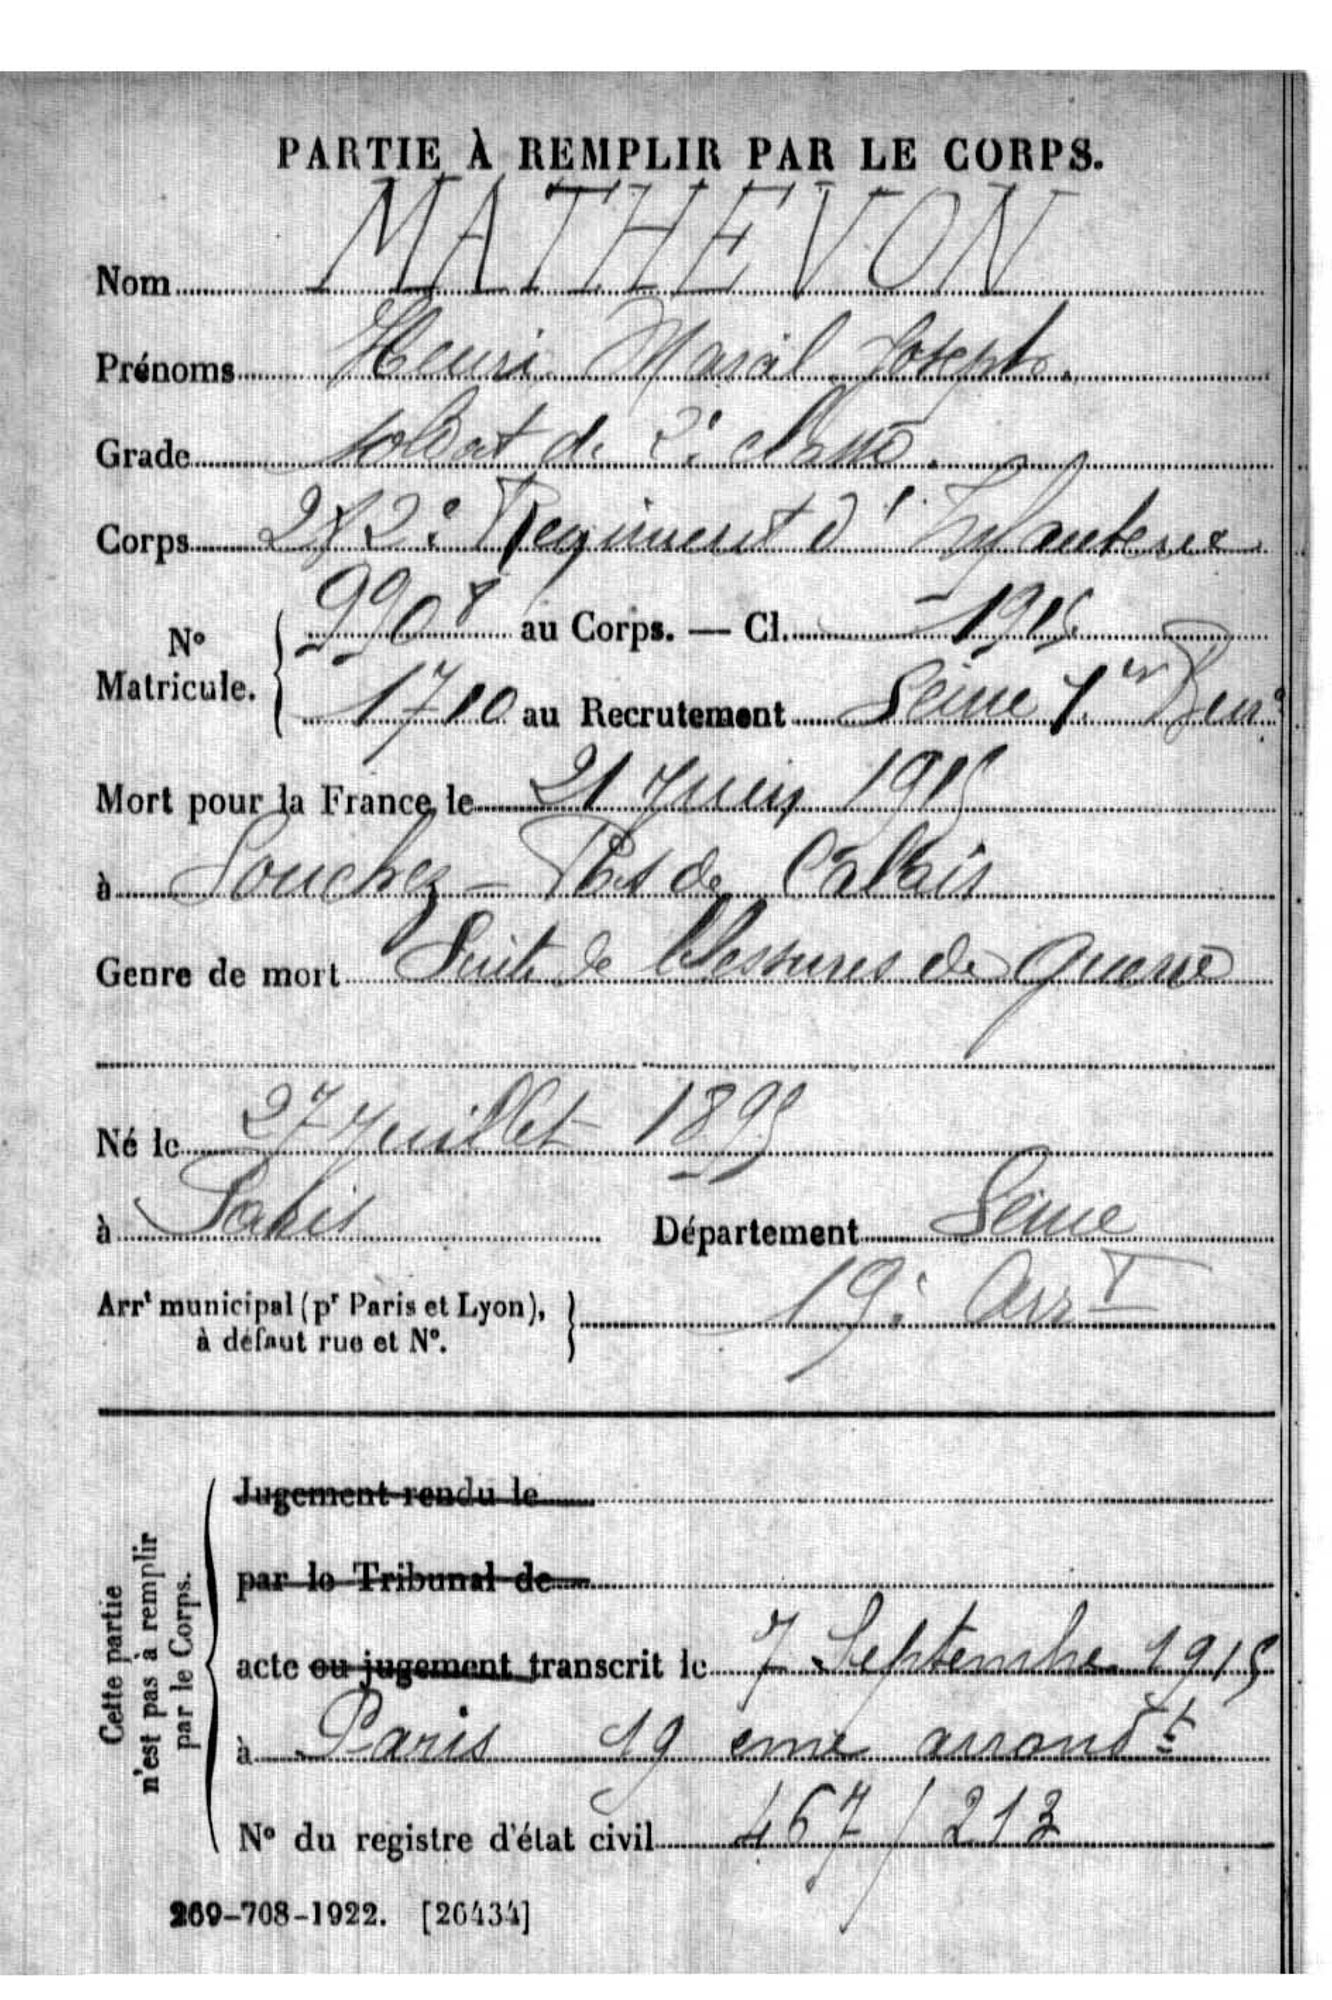 PARTIE À REMPLIR PAR LE CORPS.
Nom MATHEVON
Prénoms Henri Marcel Joseph.
Grade soldat de 2e classe.
Corps 282e Régiment d'Infanterie
N° Matricule. 9908 au Corps. — Cl. 1915
1710 au Recrutement Seine 1er Bur
Mort pour la France le 21 Juin 1915
à Souchez - Pas de Calais
Genre de mort Suite de blessures de guerre
Né le 27 Juillet 1895
à Paris Département Seine
Arrt municipal (pr Paris et Lyon), à défaut rue et N°. 19e Arrt
Cette partie n'est pas à remplir par le Corps.
Jugement rendu le
par le Tribunal de
acte ou jugement transcrit le 7 Septembre 1915
à Paris 19 eme arrondt
N° du registre d'état civil 467/213
269-708-1922. [26434]